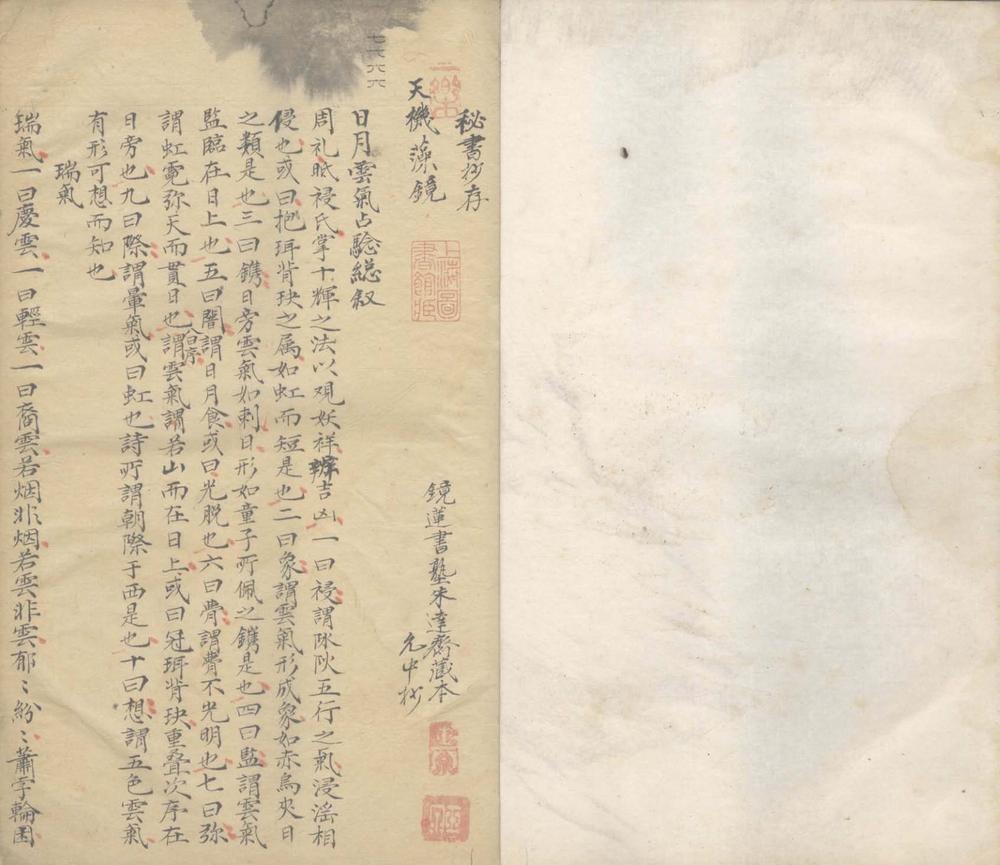 秘書抄存
天機藻鏡
上海圖書館藏
鏡蓮書塾朱達齋藏本
允中抄
日月雲氣占驗總叙
周礼眡祲氏掌十煇之法以观妖祥辨吉凶一曰祲謂阴阳五行之氣浸滛相
侵也或曰抱珥背玦之属如虹而短是也二曰象謂雲氣形成象如赤烏夾日
之類是也三曰鐫日旁雲氣如刺日形如童子所佩之鐫是也四曰監謂雲氣
監臨在日上也五曰闇謂日月食或曰光脱也六曰瞢謂瞢不光明也七曰弥
謂虹霓弥天而貫日也八曰序謂雲氣謂若山而在日上或曰冠珥背玦重叠次序在
日旁也九曰隮謂暈氣或曰虹也詩所謂朝隮于西是也十曰想謂五色雲氣
有形可想而知也
瑞氣
瑞氣一曰慶雲一曰輕雲一曰裔雲若烟非烟若雲非雲郁〻紛〻蕭字輪囷